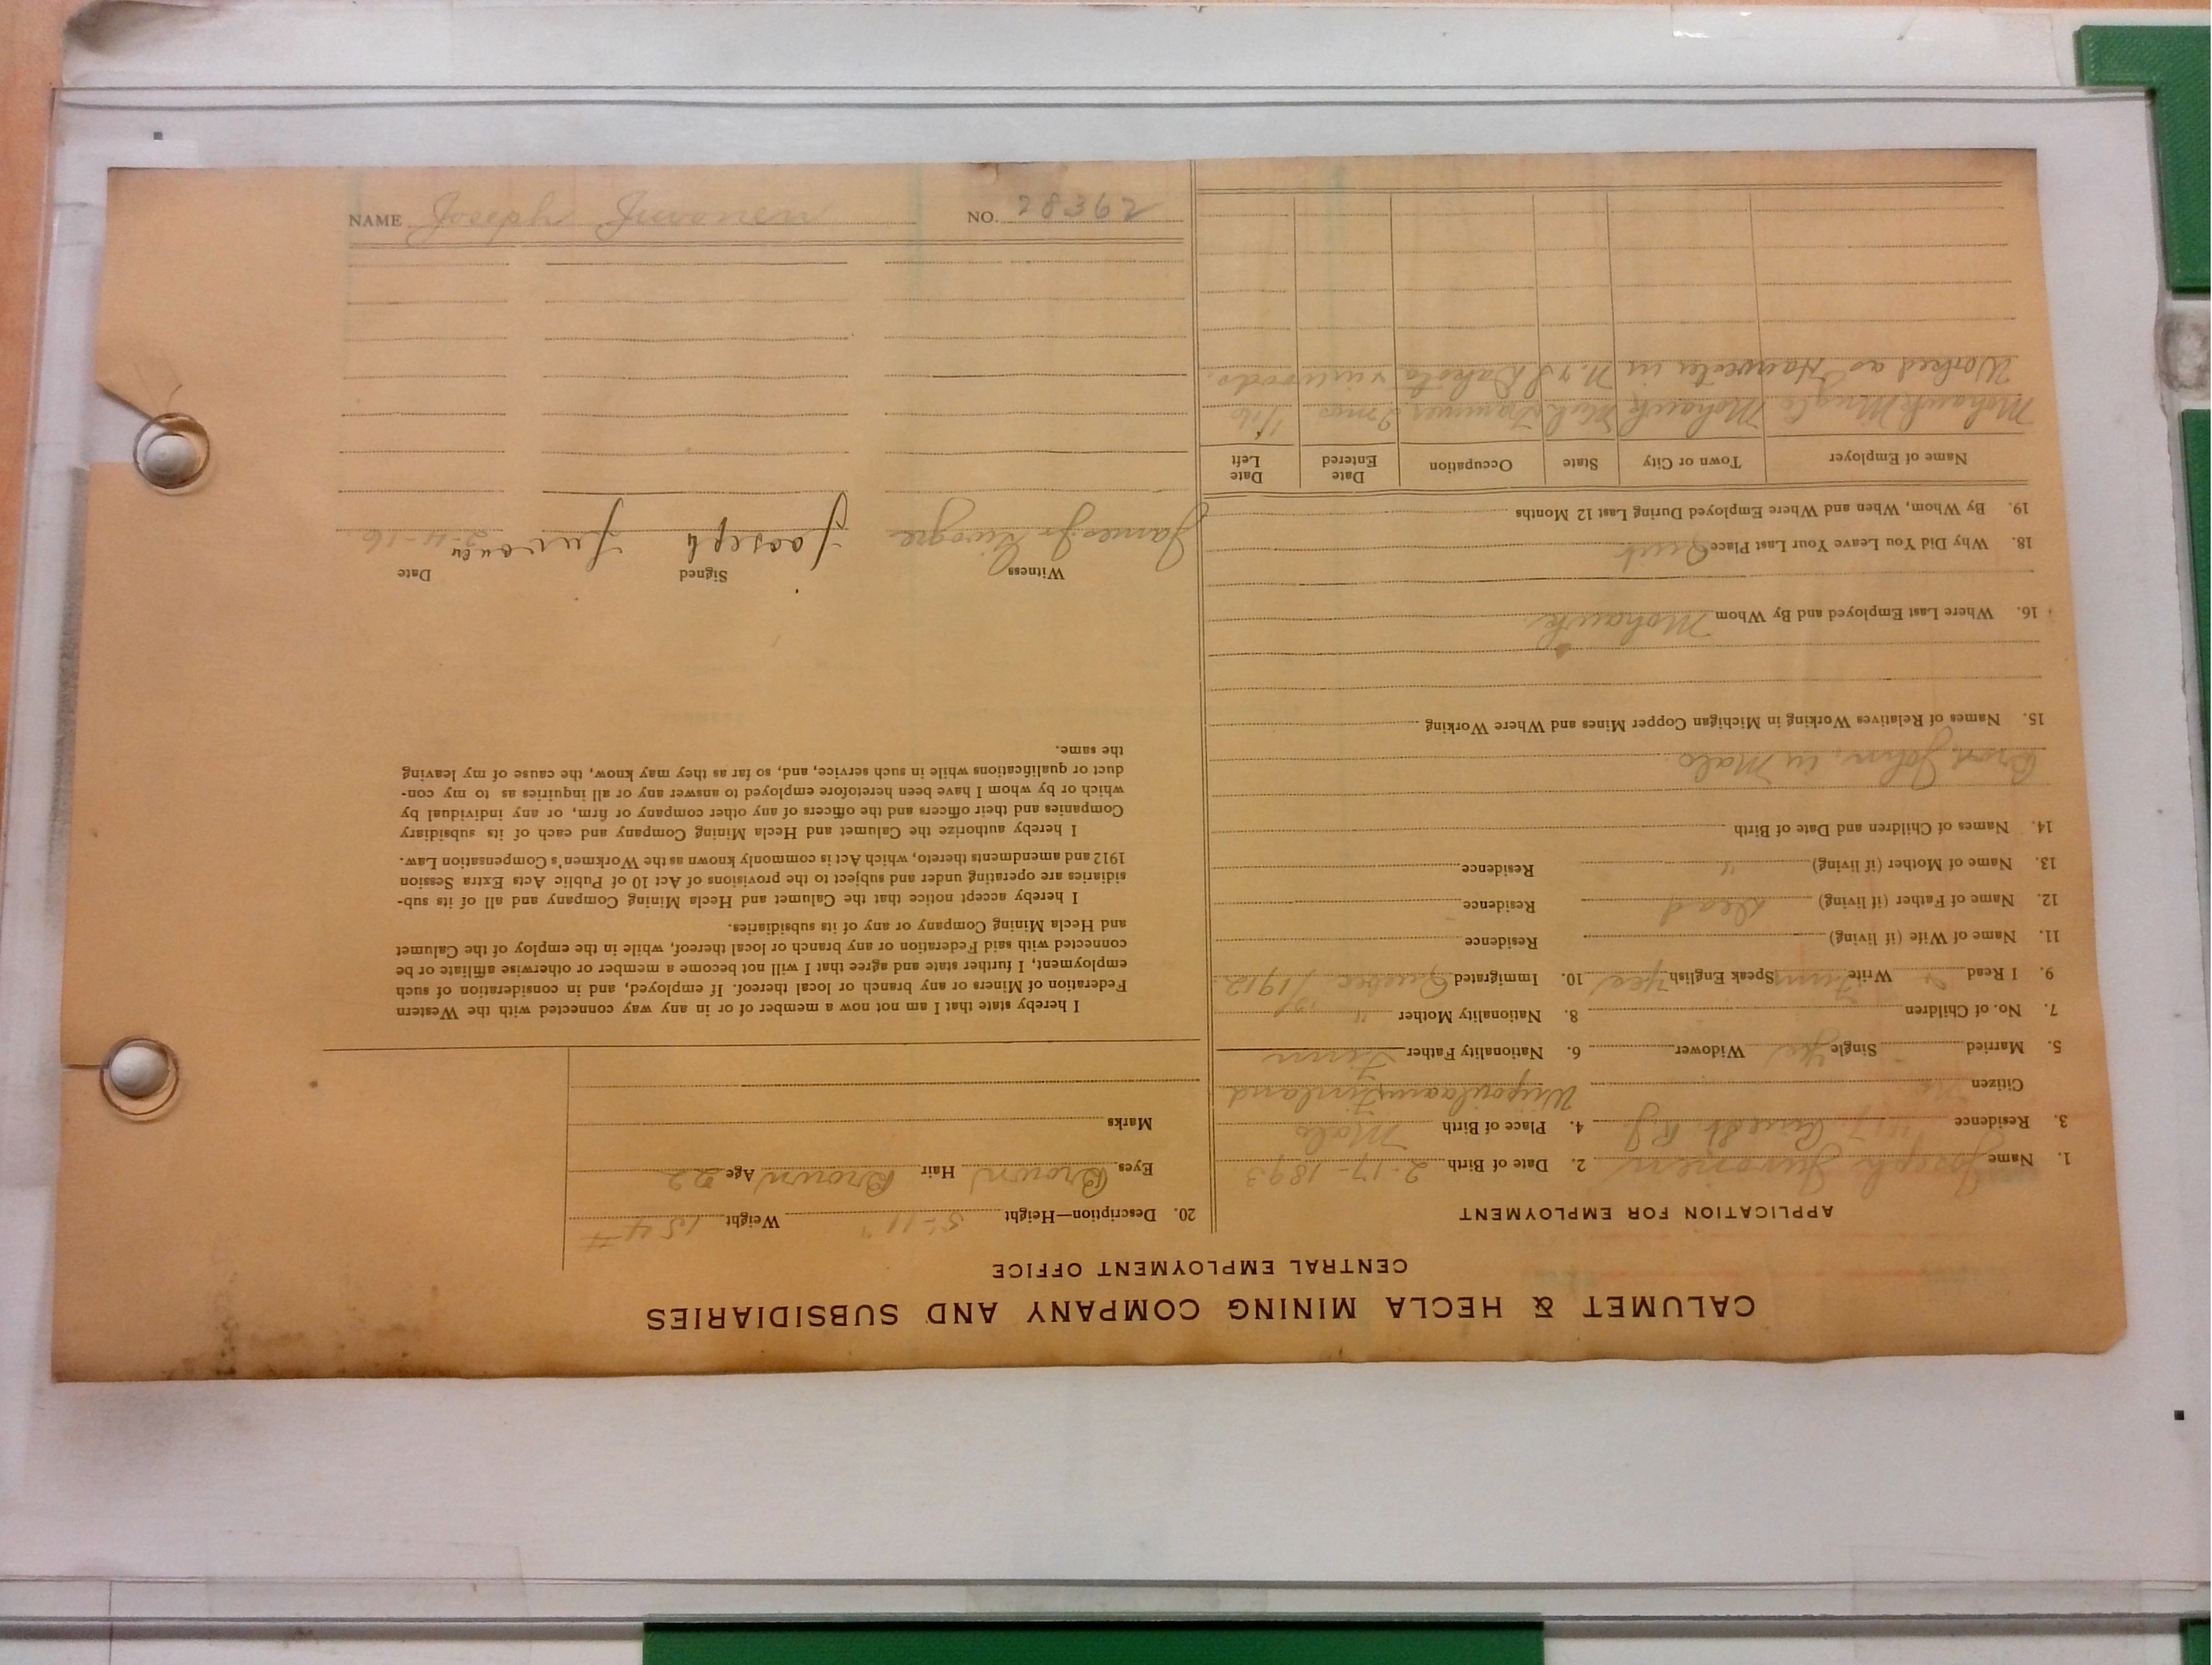 CALUMET & HECLA MINING COMPANY AND SUBSIDIARIES
CENTRAL EMPLOYMENT OFFICE
APPLICATION FOR EMPLOYMENT
1. Name Joseph Juvonen 2. Date of Birth 2-17-1893
3. Residence R.J. 4. Place of Birth Malo
Citizen No Finland
5. Married Single Yes Widower 6. Nationality Father Finn
7. No. of Children 8. Nationality Mother "
9. I Read Write Finn Speak English Yes 10. Immigrated Quebec / 1912
11. Name of Wife (if living) Residence
12. Name of Father (if living) Dead Residence
13. Name of Mother (if living) " Residence
14. Names of Children and Date of Birth
John, in Malo
15. Names of Relatives Working in Michigan Copper Mines and Where Working
16. Where Last Employed and By Whom Mohawk
18. Why Did You Leave Your Last Place Quit
19. By Whom, When and Where Employed During Last 12 Months
Name of Employer Town or City State Occupation Date Entered Date Left
Mohawk Mng Co Mohawk Mich Trammer 2 mos 1/16
Worked as Harvester in N. & S Dakota & in woods.
20. Description—Height 5-11" Weight 154 #
Eyes Brown Hair Brown Age 22
Marks
I hereby state that I am not now a member of or in any way connected with the Western
Federation of Miners or any branch or local thereof. If employed, and in consideration of such
employment, I further state and agree that I will not become a member or otherwise affiliate or be
connected with said Federation or any branch or local thereof, while in the employ of the Calumet
and Hecla Mining Company or any of its subsidiaries.
I hereby accept notice that the Calumet and Hecla Mining Company and all of its sub-
sidiaries are operating under and subject to the provisions of Act 10 of Public Acts Extra Session
1912 and amendments thereto, which Act is commonly known as the Workmen's Compensation Law.
I hereby authorize the Calumet and Hecla Mining Company and each of its subsidiary
Companies and their officers and the officers of any other company or firm, or any individual by
which or by whom I have been heretofore employed to answer any or all inquiries as to my con-
duct or qualifications while in such service, and, so far as they may know, the cause of my leaving
the same.
Witness Signed Date
James Jooseph Juvonen 2-4-16
NAME Joseph Juvonen NO. 28362